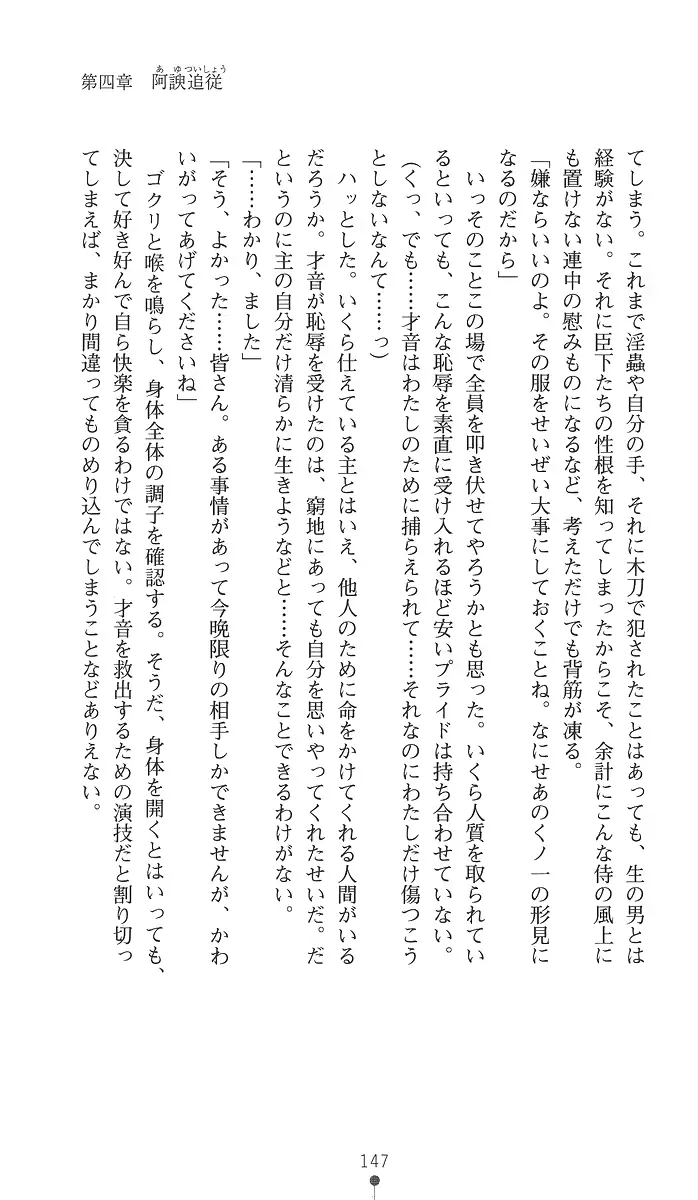 第四章　阿諛追従
あゆついしょう
てしまう。これまで淫蟲や自分の手、それに木刀で犯されたことはあっても、生の男とは
経験がない。それに臣下たちの性根を知ってしまったからこそ、余計にこんな侍の風上に
も置けない連中の慰みものになるなど、考えただけでも背筋が凍る。
「嫌ならいいのよ。その服をせいぜい大事にしておくことね。なにせあのくノ一の形見に
なるのだから」
いっそのことこの場で全員を叩き伏せてやろうかとも思った。いくら人質を取られてい
るといっても、こんな恥辱を素直に受け入れるほど安いプライドは持ち合わせていない。
（くっ、でも……才音はわたしのために捕らえられて……それなのにわたしだけ傷つこう
としないなんて……っ）
ハッとした。いくら仕えている主とはいえ、他人のために命をかけてくれる人間がいる
だろうか。才音が恥辱を受けたのは、窮地にあっても自分を思いやってくれたせいだ。だ
というのに主の自分だけ清らかに生きようなどと……そんなことできるわけがない。
「……わかり、ました」
「そう、よかった……皆さん。ある事情があって今晩限りの相手しかできませんが、かわ
いがってあげてくださいね」
ゴクリと喉を鳴らし、身体全体の調子を確認する。そうだ、身体を開くとはいっても、
決して好き好んで自ら快楽を貪るわけではない。才音を救出するための演技だと割り切っ
てしまえば、まかり間違ってものめり込んでしまうことなどありえない。
147